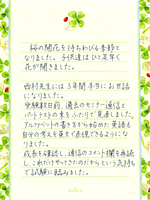 桜の開花を待ちわびる季節と
なりました。子供達はひと足早く
花が開きました。
西村先生には3年間本当にお世話
になりました。
受験数日前、過去のセミナー通信と
パートテストの束をふたりで見直しました。
アルファベットの書き方から始めた英語も
自分の考えを英文で表現できるようにな
りました。
成長を確認し、通信のコメント欄を再読
し、これだけやってきたのだからという気持ち
で試験に臨みました。